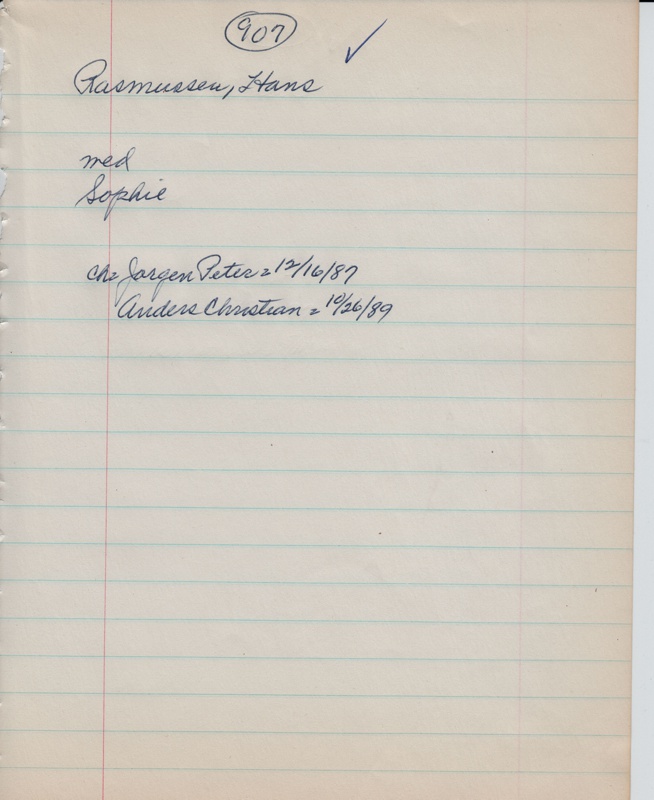 907
Rasmussen, Hans
med
Sophie
ch= Jorgen Peter = 12/16/87
Anders Christian = 10/26/89